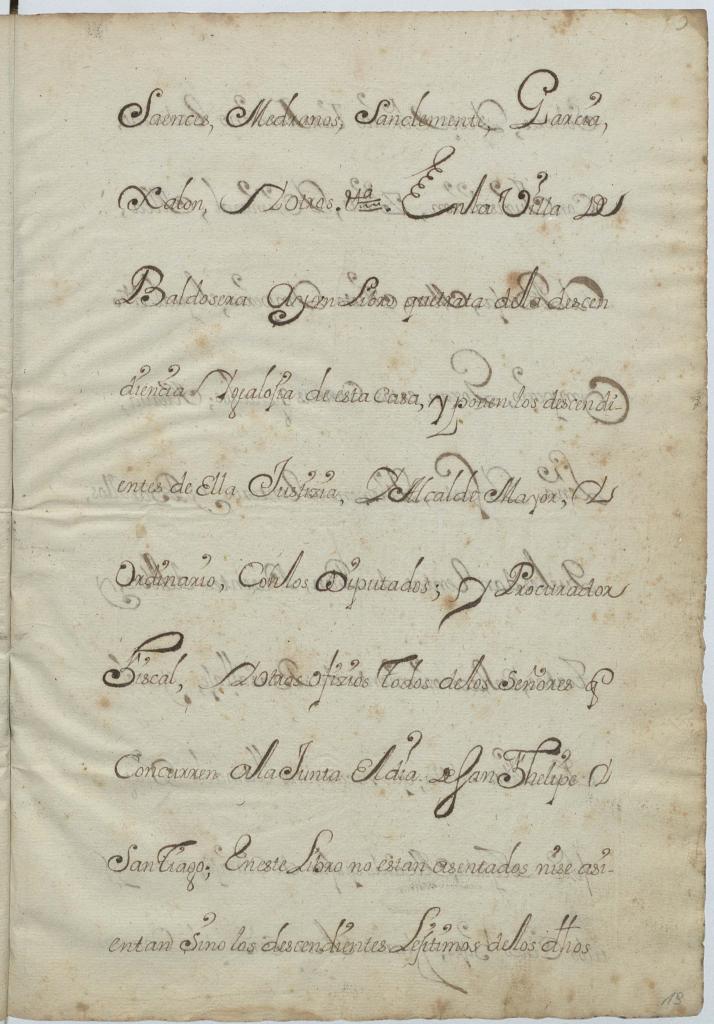 Saencie, Medranos, Sanclemente, Garcia,
Xalon, Y otros. Etta. En la Villa De
Baldosera Ay un Libro que trata de la descen
diencia Y galosia de esta Casa, y ponen los descendi-
entes de Ella Justizia, Y Alcalde Mayor, Y
Ordinario, Con los Diputados; y Procurador
Fiscal, Y otros ofizios Todos de los Señores q
Concurren a la Junta El dia De San Phelipe Y
SanTiago; En este Libro no estan asentados ni se asi-
entan Sino los descendientes Lejitimos de los dhos
19